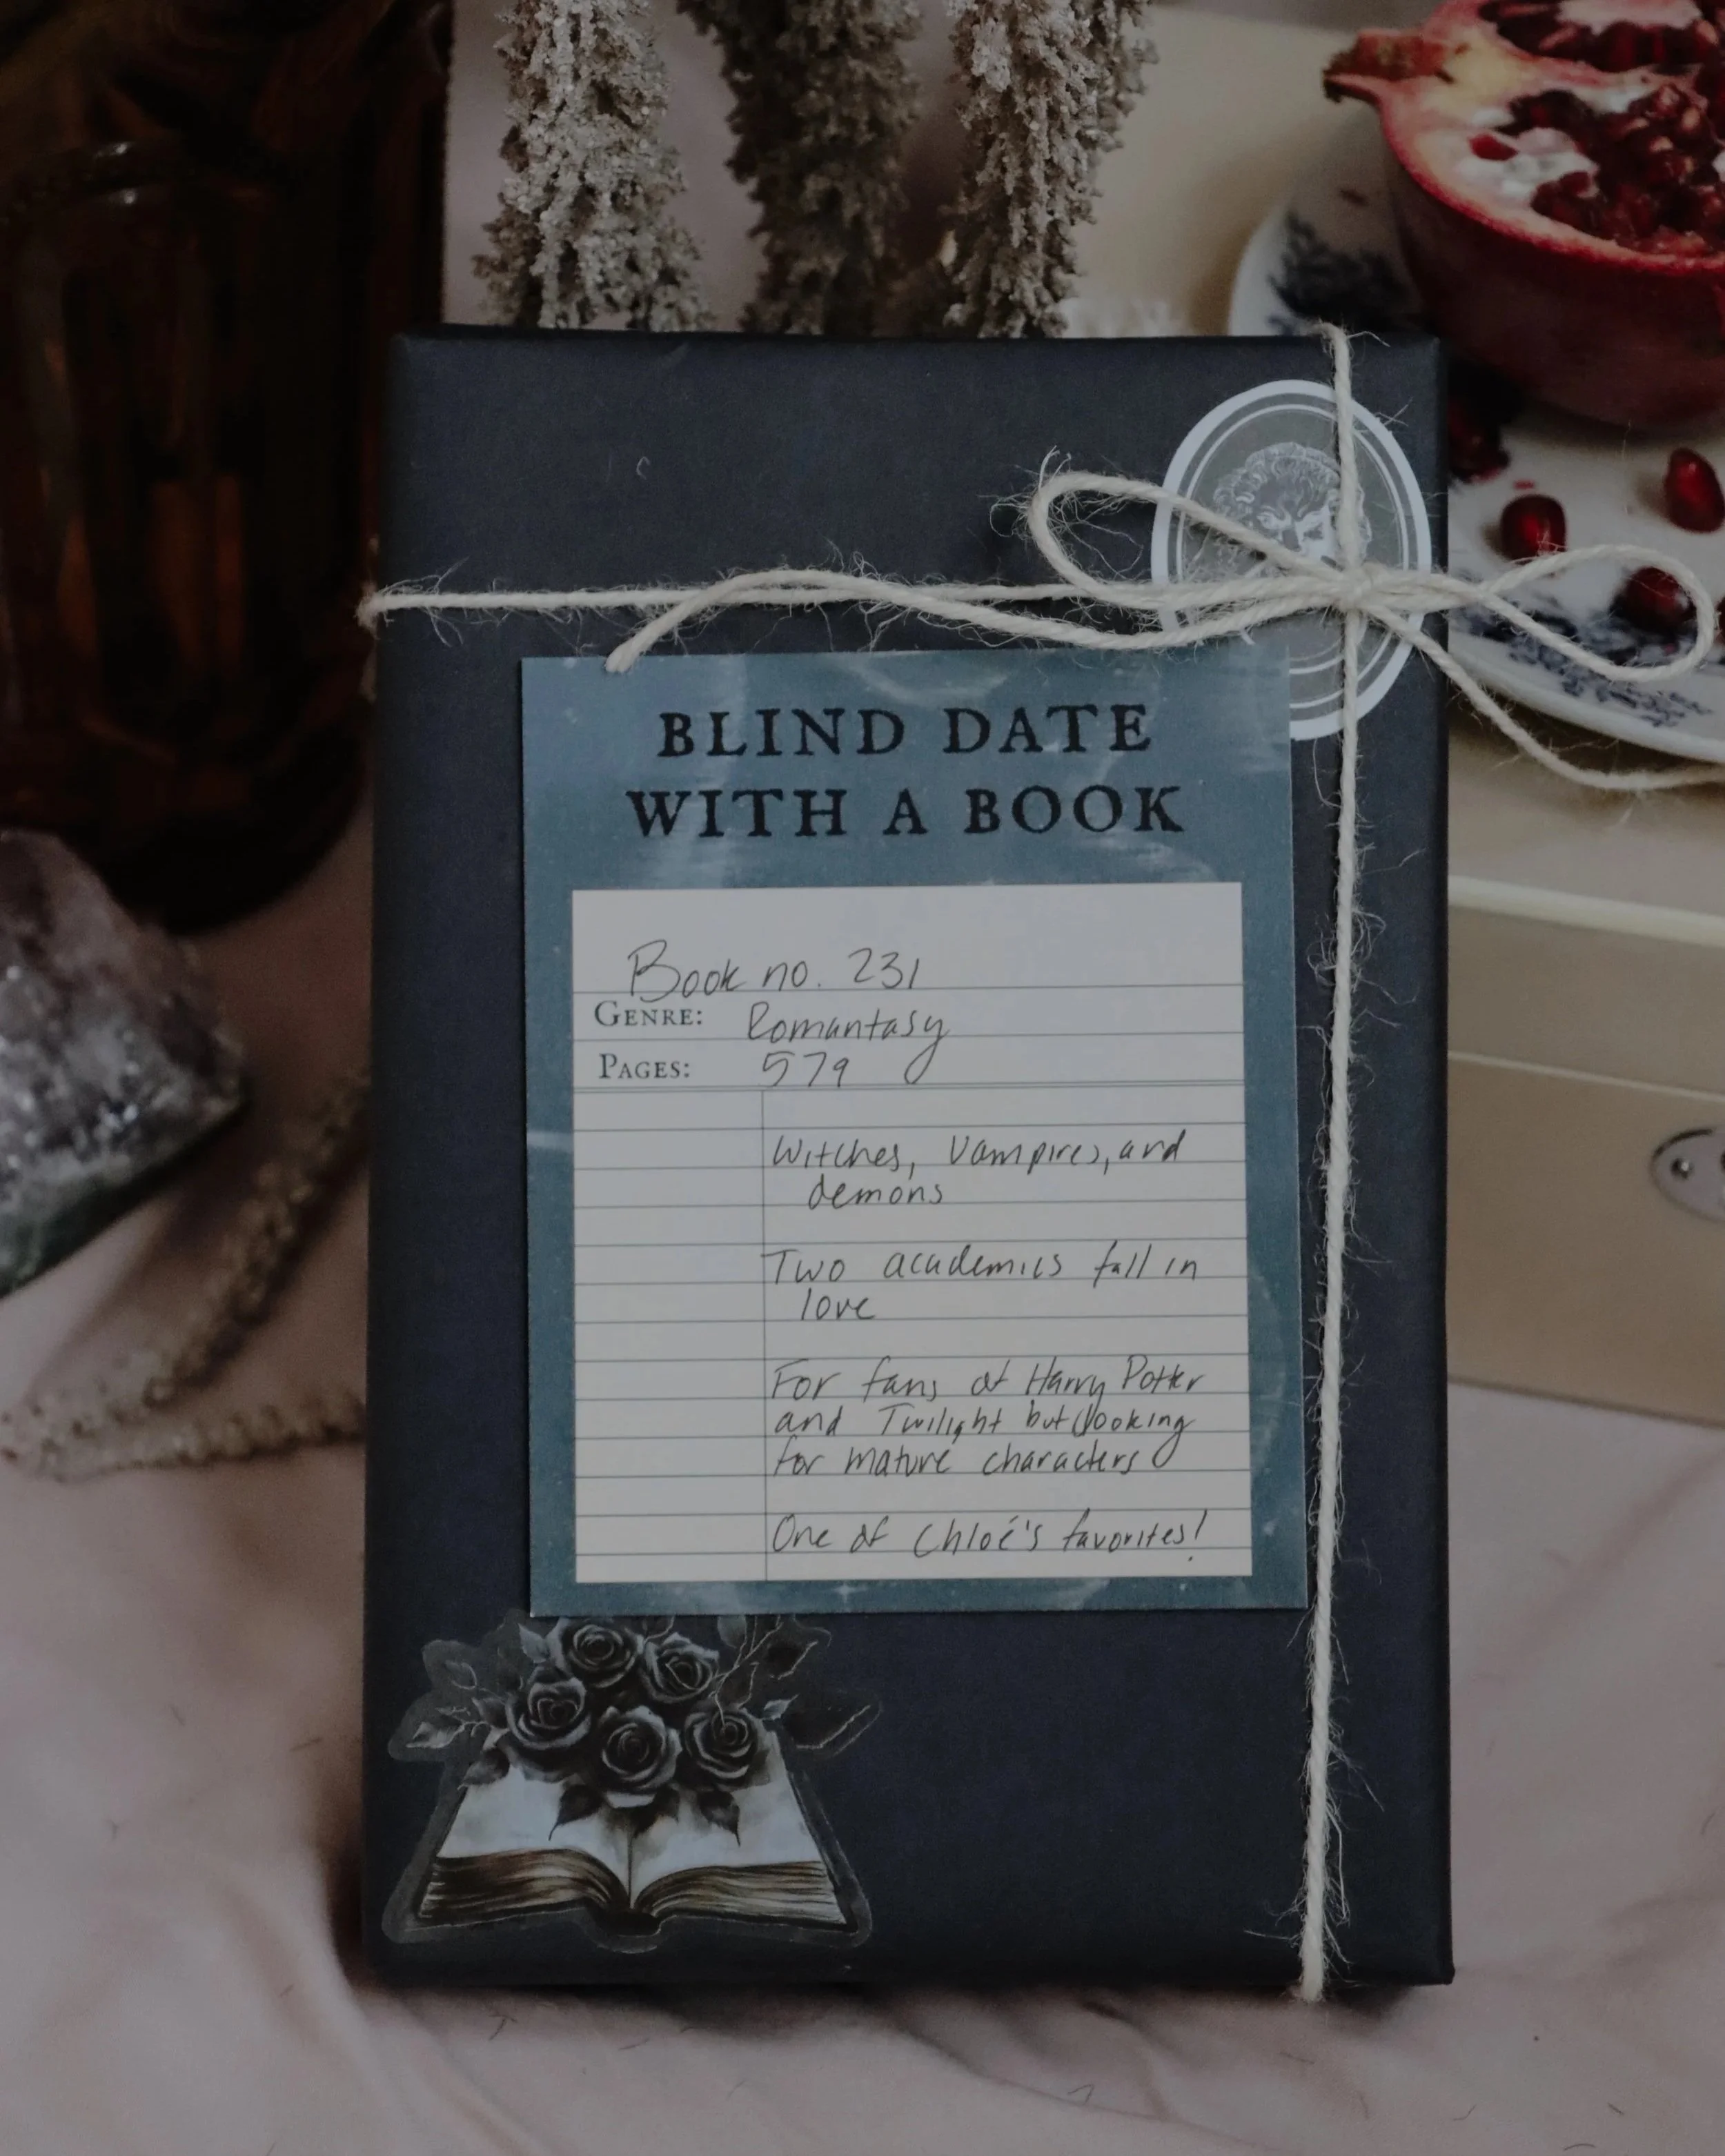 BLIND DATE
WITH A BOOK
Book no. 231
GENRE: Romantasy
PAGES: 579
Witches, Vampires, and
demons
Two academics fall in
love
For fans of Harry Potter
and Twilight but looking
for mature characters
One of Chloé's favorites!